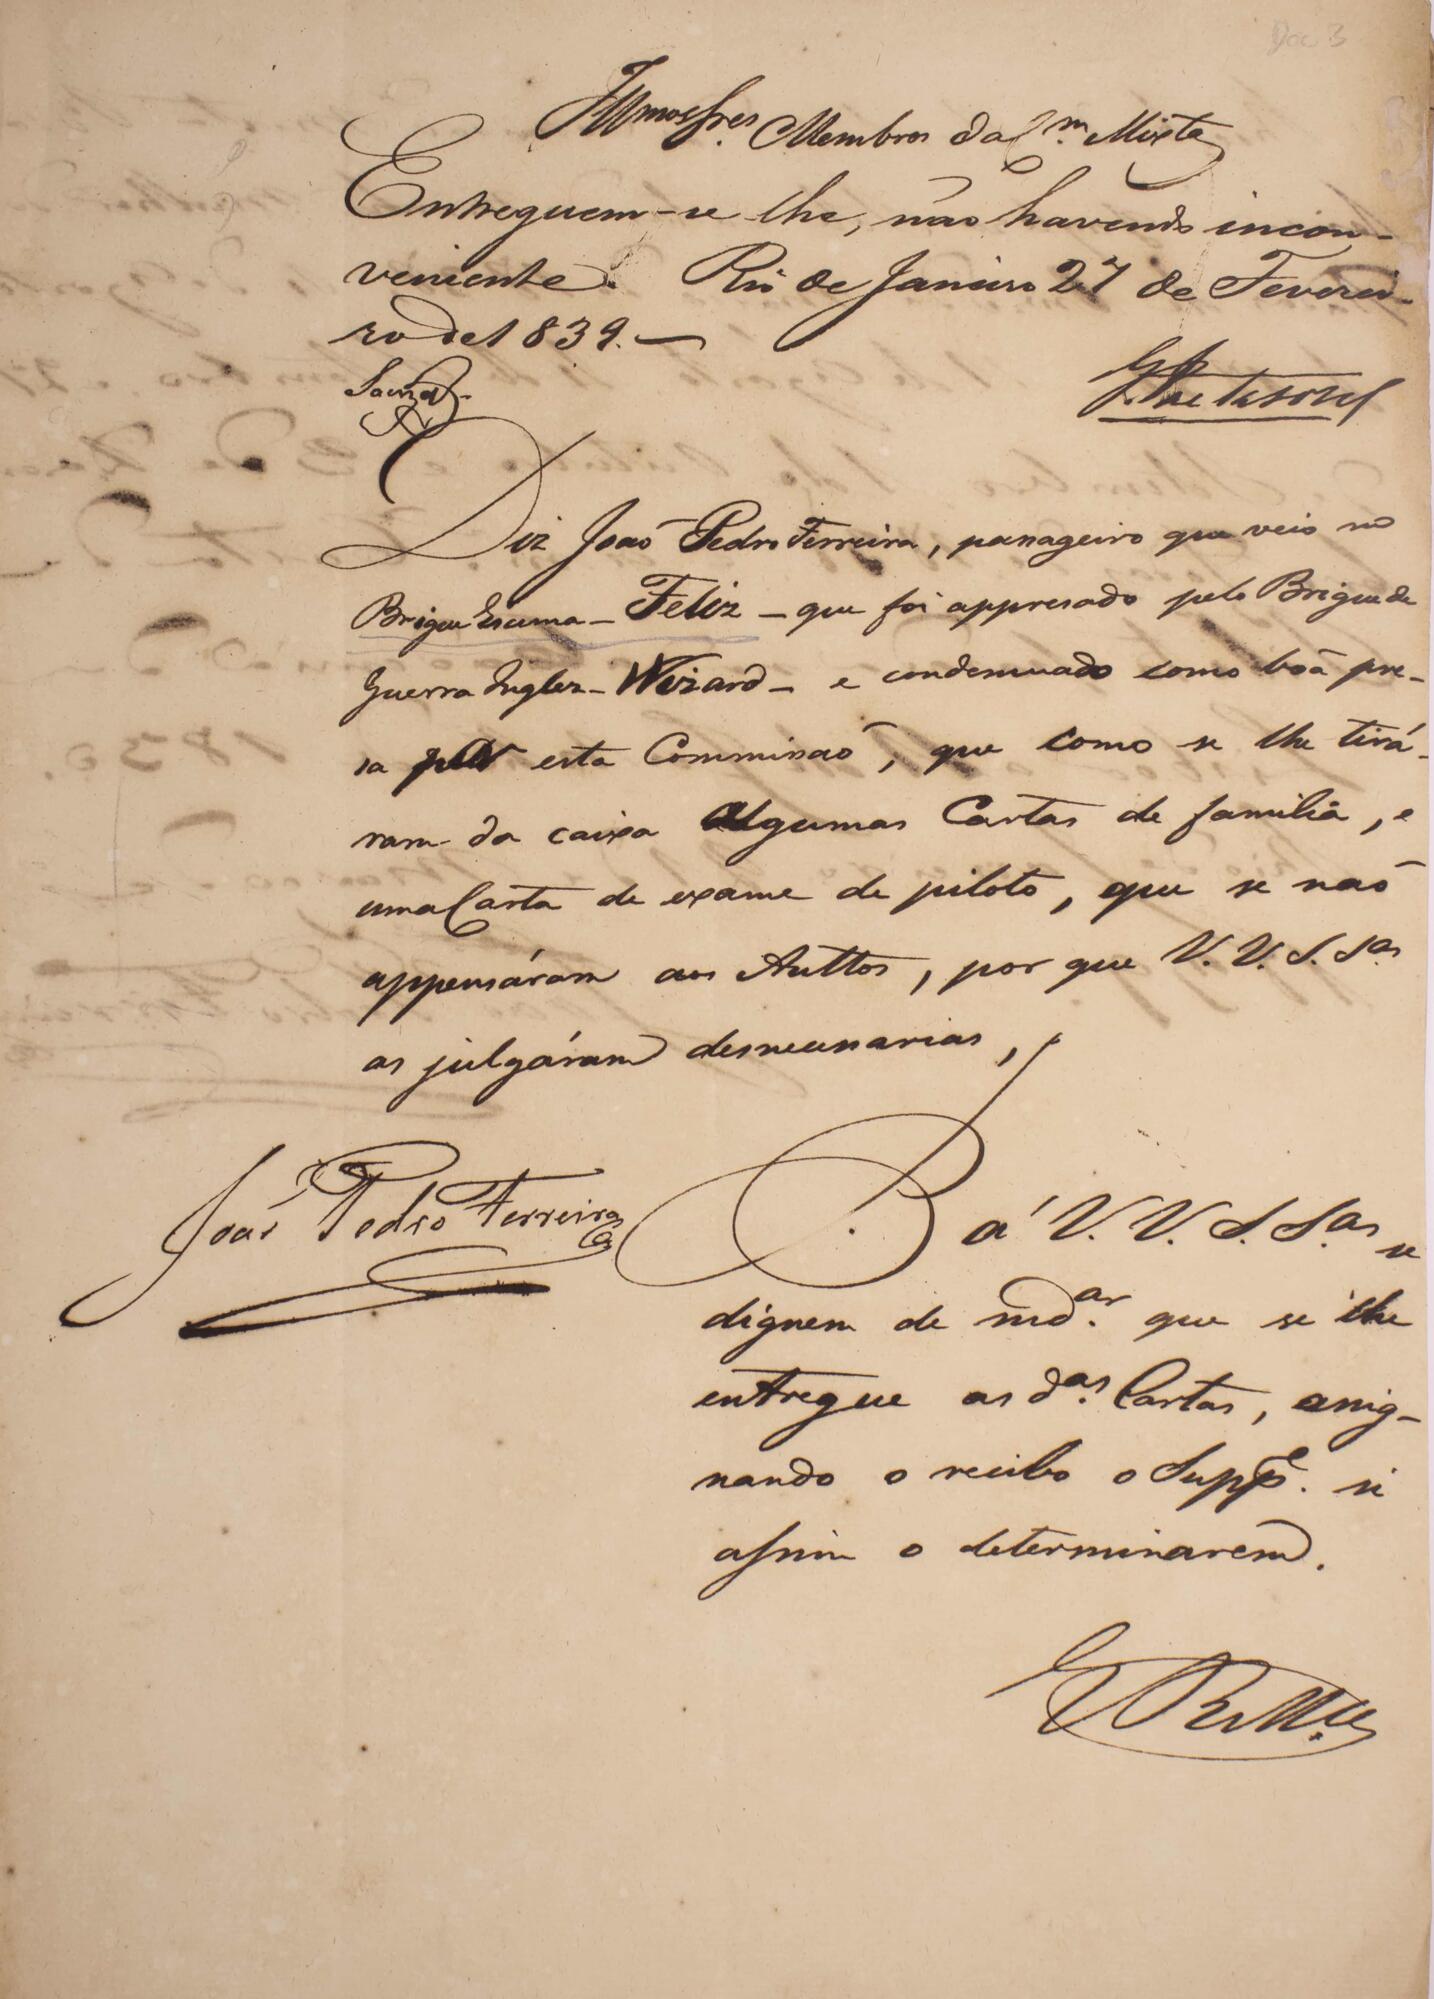 Doc 3
Illmos Snres. Membros da Cm. Mixta
Entreguem-se lhe, não havendo incon-
veniente. Rio de Janeiro 27 de Feverei-
ro de 1839.—
Souza
Diz João Pedro Ferreira, passageiro que veio no
Brigue Escuna - Feliz - que foi appresado pelo Brigue de
Guerra Inglez - Wizard - e condemnado como boã pre-
sa por esta Commissaõ, que como se lhe tirá-
ram da caixa algumas Cartas de familia, e
uma Carta de exame de piloto, que se naõ
appensáram aos Auttos, por que V. V. S. Sas
as julgáram desnecessarias,
P. á V. V. S. Sas se
João Pedro Ferreira
dignem de mdar. que se lhe
entregue as das. Cartas, assig-
nando o recibo o Suppe. si
assim o determinarem.
E R Mce.